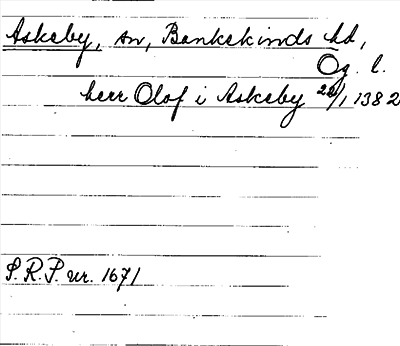 Askeby, sn, Bankekinds hd,
Ög. l.
herr Olof i Askeby 20/1 1382
S.R.P. nr. 1671